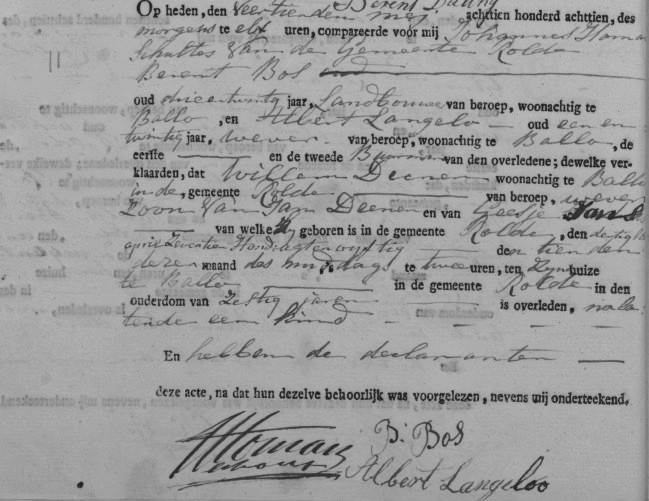 Berent
Op heden, den veertienden mey achttien honderd achttien, des
morgens te elf uren, compareerde voor mij Johannes Homan
Schultes van de Gemeente Rolde
Berent Bos
oud drieentwintig jaar, Landbouwer van beroep, woonachtig te
Ballo, en Albert Langeloo oud een en
twintig jaar, wever van beroep, woonachtig te Ballo, de
eerste en de tweede Buurman van den overledene; dewelke ver-
klaarden, dat Willem Deenen woonachtig te Ballo
in de, gemeente Rolde van beroep, wever
Zoon van Jan Deenen en van Geesje Jans
van welke hy geboren is in de gemeente Rolde, den dertigsten
april zeventien Hondert agt en vyftig den tienden
dezer maand des middags te twee uren, ten zynen huize
te Ballo in de gemeente Rolde in den
ouderdom van zestig jaren is overleden, nala-
tende een kind
En hebben de declaranten
deze acte, na dat hun dezelve behoorlijk was voorgelezen, nevens mij onderteekend.
JHoman
B. Bos
Albert Langeloo